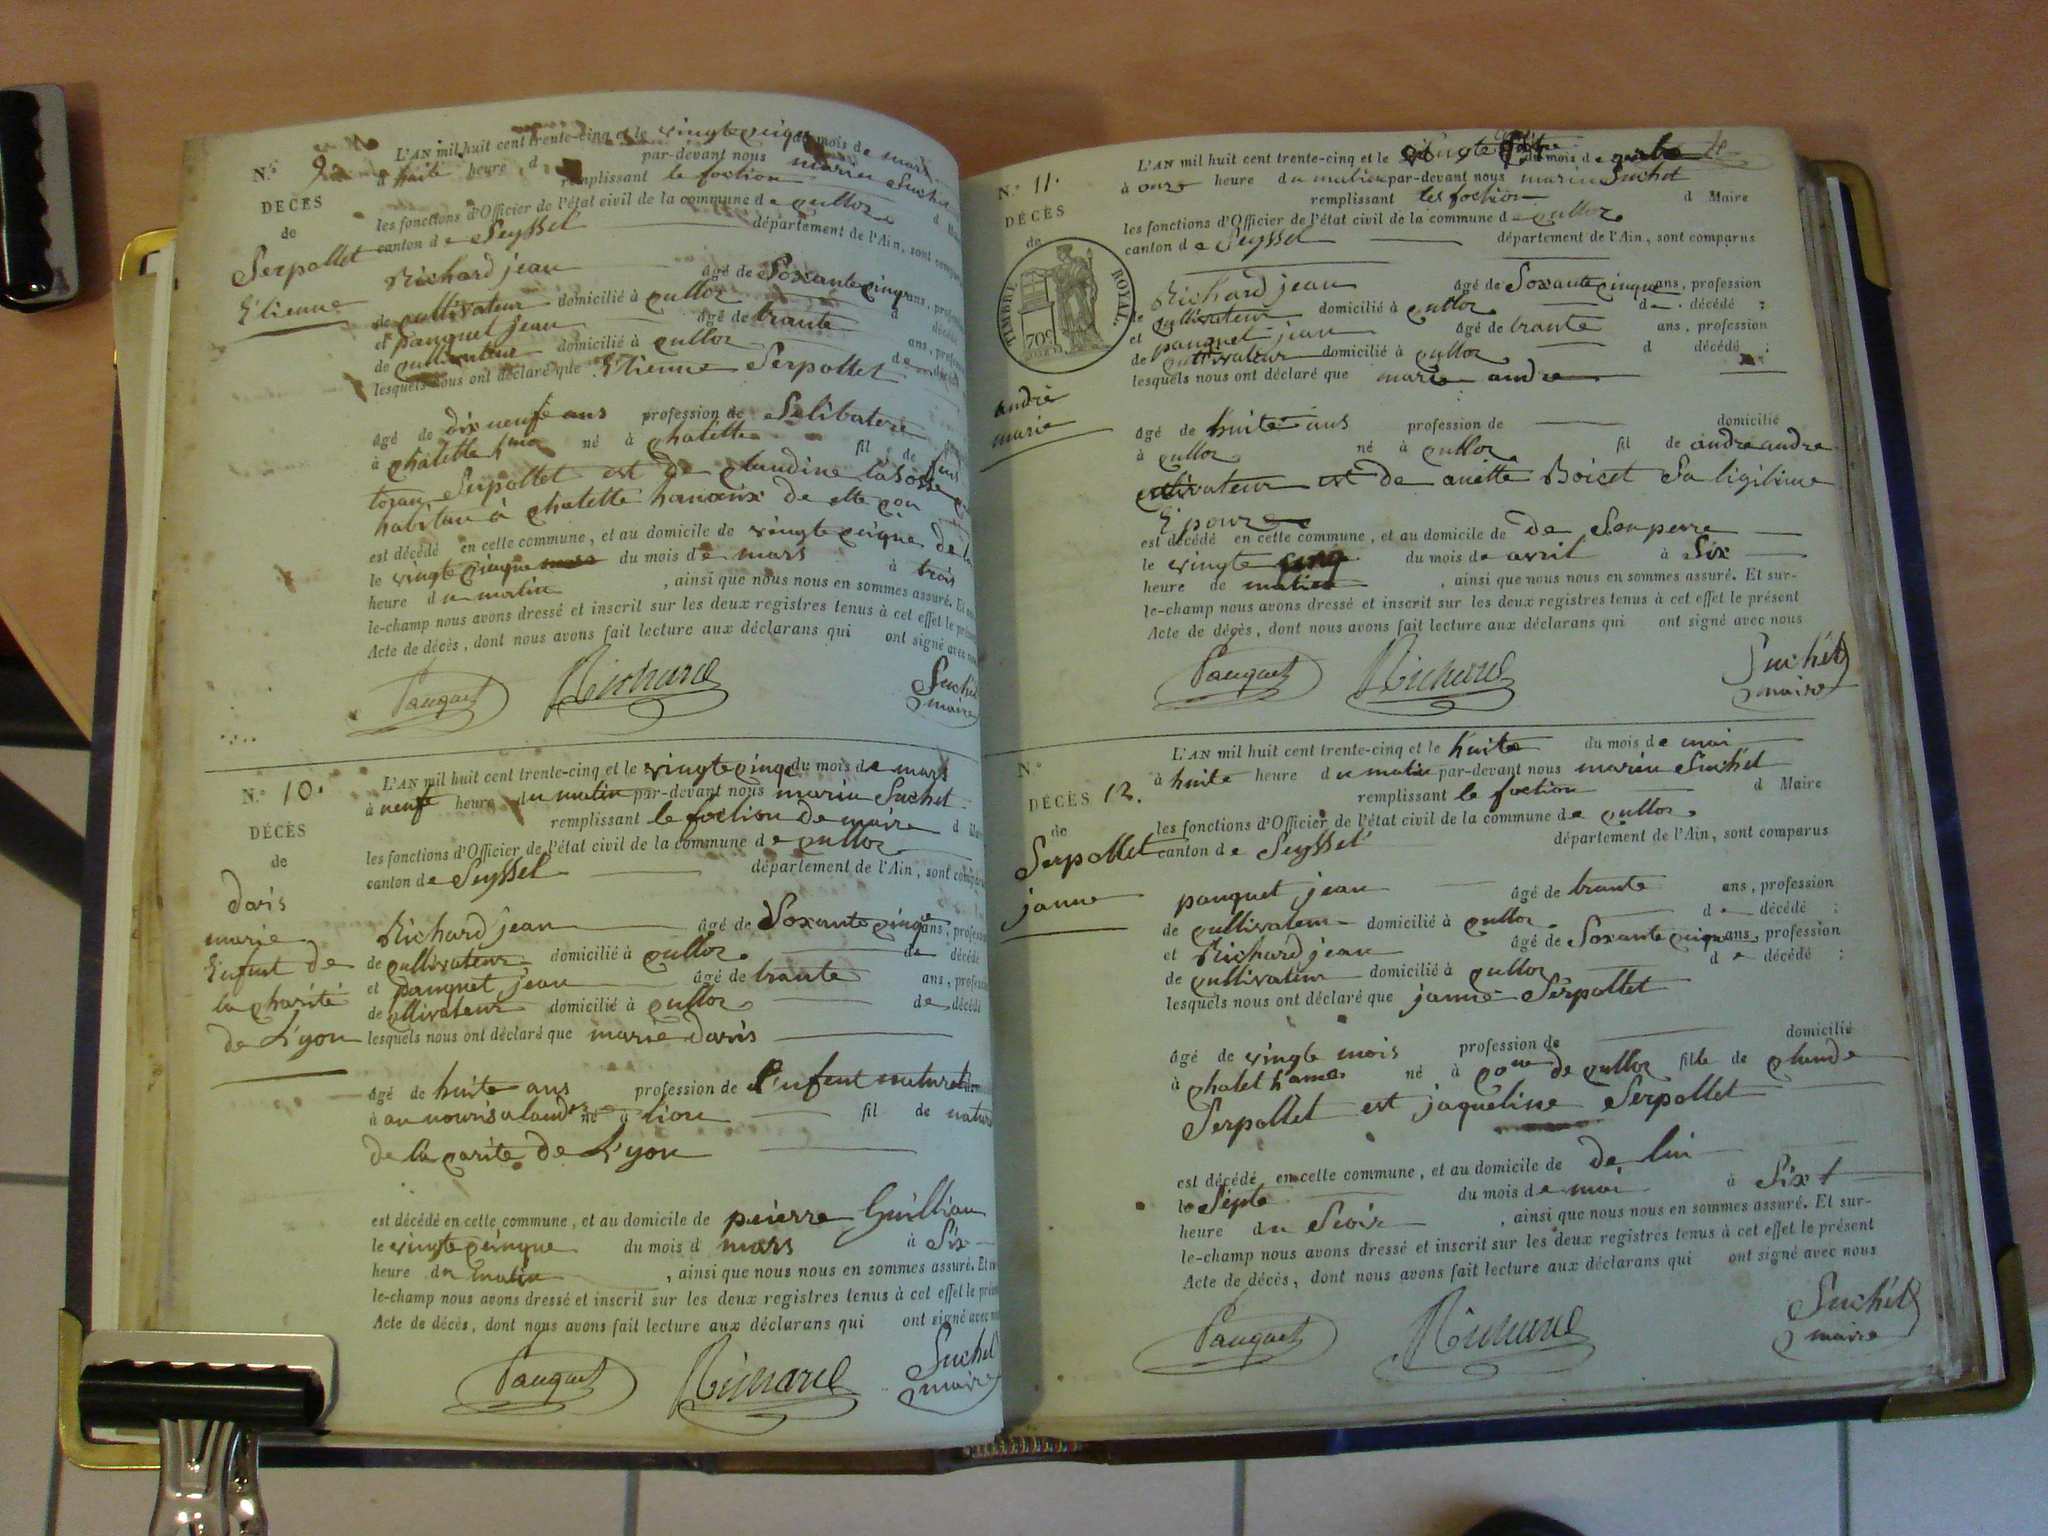 N.° 9.
DÉCÈS
de
Serpollet
Etienne
L'AN mil huit cent trente-cinq et le vingte cinque du mois de mars
à huite heure d par-devant nous marieu Suchet
remplissant le foction d Maire
les fonctions d'Officier de l'état civil de la commune de culloz
canton de Seyssel département de l'Ain, sont comparus
Richard jean âgé de Soxante cinq ans, profession
de cultivateur domicilié à culloz d décédé
et pauquet jean âgé de trante ans, profession
de cultivateur domicilié à culloz de décédé
lesquels nous ont déclaré que Etienne Serpollet
âgé de dix neufe ans profession de Selibatere
à chatette né à chatette fil de feus
Serpollet est de claudine
habitan à chatette de
est décédé en cette commune, et au domicile de vingte cinque de
le vingte cinque mars du mois de mars à trois
heure du matin, ainsi que nous nous en sommes assuré. Et sur-
le-champ nous avons dressé et inscrit sur les deux registres tenus à cet effet le présent
Acte de décès, dont nous avons fait lecture aux déclarans qui ont signé avec nous
Pauquet Richard Suchet
maire
N.° 10.
DÉCÈS
de
Daris
marie
Enfant de
la charité
de Lyon
L'AN mil huit cent trente-cinq et le vingte cinq du mois de mars
à neufe heure du matin par-devant nous marieu Suchet
remplissant le foction de maire d Maire
les fonctions d'Officier de l'état civil de la commune de culloz
canton de Seyssel département de l'Ain, sont comparus
Richard jean âgé de Soxante cinq ans, profession
de cultivateur domicilié à culloz de décédé
et pauquet jean âgé de trante ans, profession
de cultivateur domicilié à culloz de décédé
lesquels nous ont déclaré que marie daris
âgé de huite ans profession de L'enfent naturel
à au né à lion fil de nature
de la carite de Lyon
est décédé en cette commune, et au domicile de peierre Guillian
le vingte cinque du mois d mars à Six
heure du matin, ainsi que nous nous en sommes assuré. Et sur-
le-champ nous avons dressé et inscrit sur les deux registres tenus à cet effet le présent
Acte de décès, dont nous avons fait lecture aux déclarans qui ont signé avec nous
Pauquet Richard Suchet
maire
N.° 11.
DÉCÈS
de
TIMBRE ROYAL.
70c
andre
marie
L'AN mil huit cent trente-cinq et le vingte du mois de
à onze heure du matin par-devant nous marieu Suchet
remplissant les foction d Maire
les fonctions d'Officier de l'état civil de la commune de culloz
canton de Seyssel département de l'Ain, sont comparus
Richard jean âgé de Soxante cinque ans, profession
de cultivateur domicilié à culloz de décédé ;
et pauquet jean âgé de trante ans, profession
de cultivateur domicilié à culloz d décédé ;
lesquels nous ont déclaré que marie andre
âgé de huite ans profession de domicilié
à culloz né à culloz fil de andre andre
cultivateur est de anette Boicet Sa ligitime
Epouze
est décédé en cette commune, et au domicile de de Son perre
le vingte cinq du mois de avril à Six
heure de matien, ainsi que nous nous en sommes assuré. Et sur-
le-champ nous avons dressé et inscrit sur les deux registres tenus à cet effet le présent
Acte de décès, dont nous avons fait lecture aux déclarans qui ont signé avec nous
Pauquet Richard Suchet
maire
N.°
DÉCÈS 12.
de
Serpollet
janne
L'AN mil huit cent trente-cinq et le huite du mois de mai
à huite heure du matin par-devant nous marieu Suchet
remplissant le foction d Maire
les fonctions d'Officier de l'état civil de la commune de culloz
canton de Seyssel département de l'Ain, sont comparus
pauquet jean âgé de trante ans, profession
de cultivateur domicilié à culloz de décédé ;
et Richard jean âgé de Soxante cinque ans, profession
de cultivateur domicilié à culloz de décédé ;
lesquels nous ont déclaré que janne Serpollet
âgé de vingte mois profession de domicilié
à chatet né à de culloz fille de claude
Serpollet est jaqueline Serpollet
est décédé en cette commune, et au domicile de de lui
le Septe du mois de mai à Six
heure du Seoir, ainsi que nous nous en sommes assuré. Et sur-
le-champ nous avons dressé et inscrit sur les deux registres tenus à cet effet le présent
Acte de décès, dont nous avons fait lecture aux déclarans qui ont signé avec nous
Pauquet Richard Suchet
maire